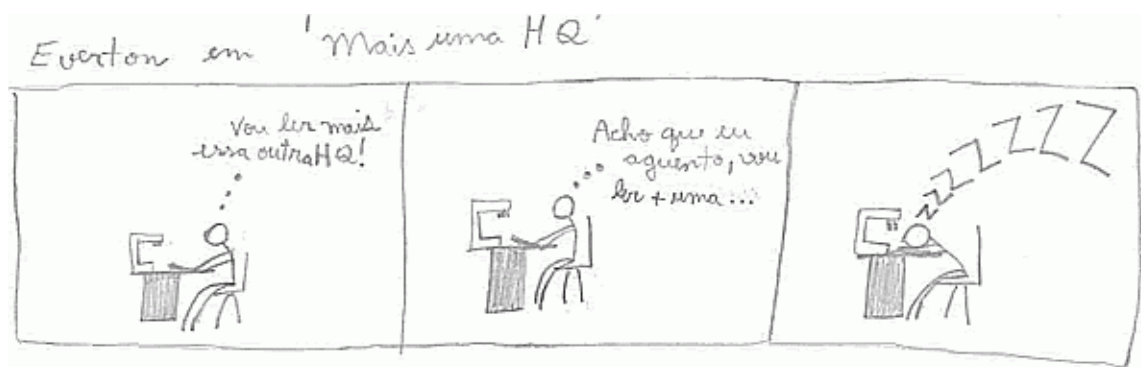 Everton em 'Mais uma HQ'
Vou ler mais
essa outra HQ!
Acho que eu
aguento, vou
ler + uma...
ZZZZZZZZZ